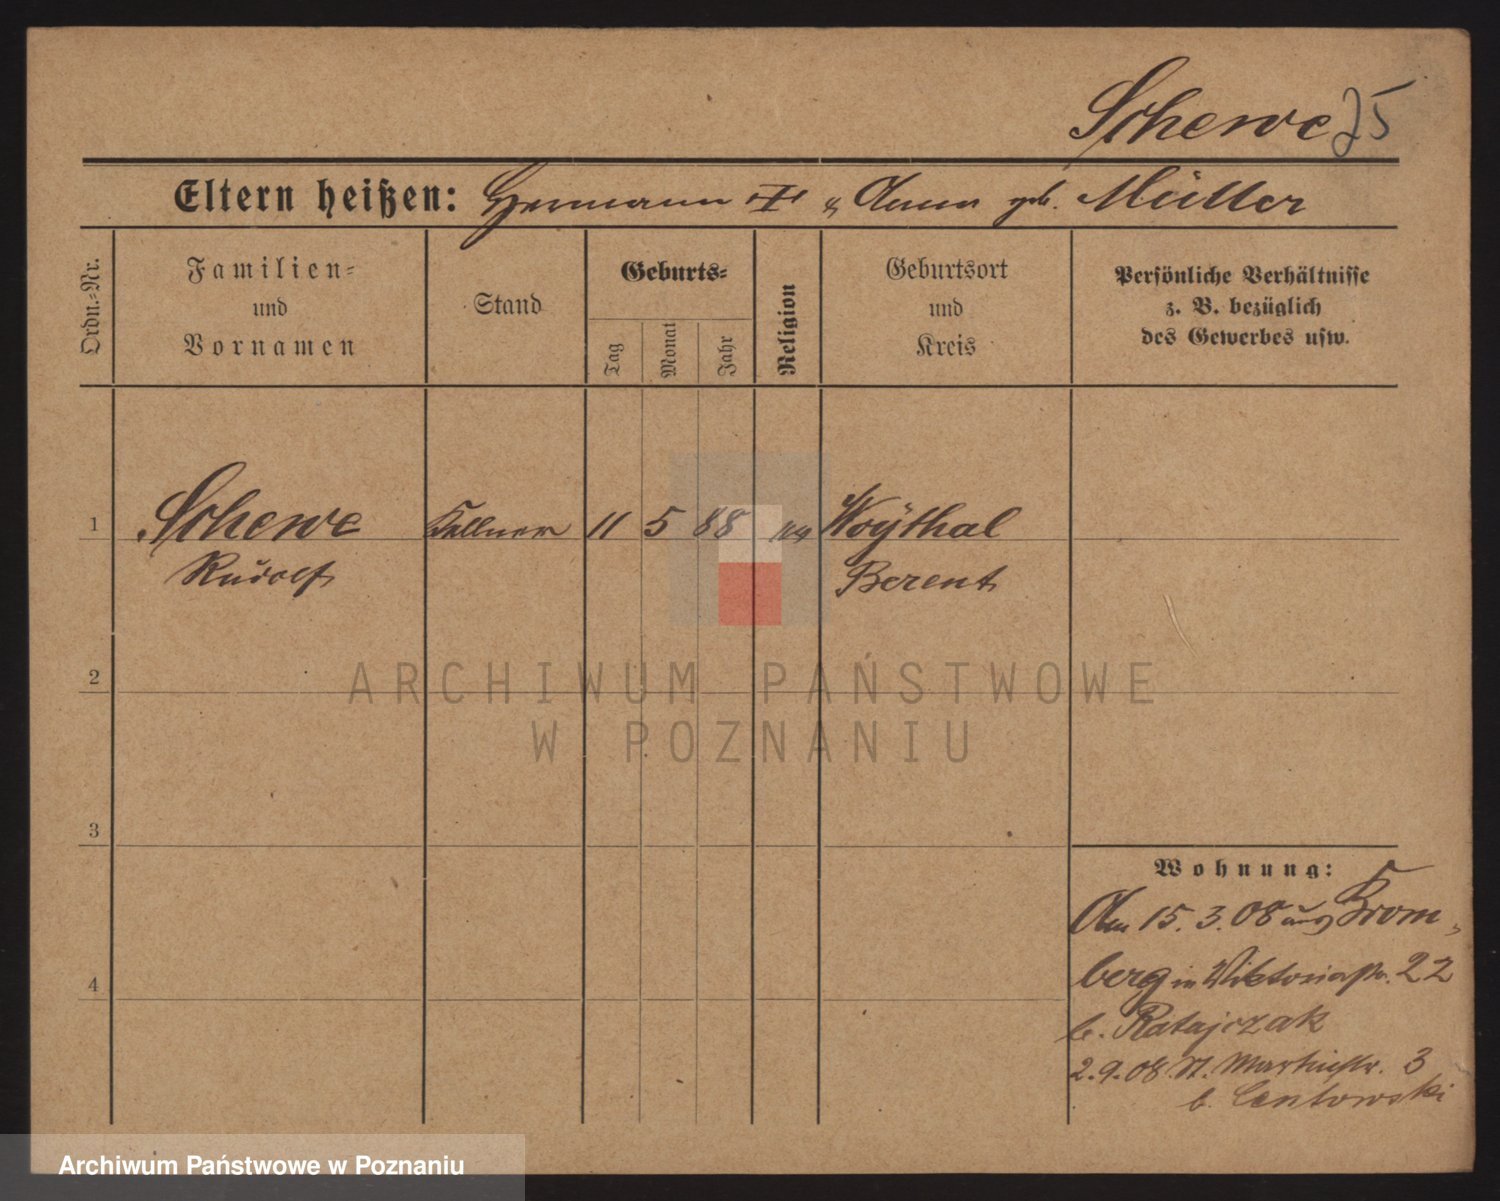 Schewe 75
Eltern heißen: Hermann & Anna geb. Müller
Ordn.=Nr.
Familien=
und
Vornamen
Stand
Geburts=
Tag
Monat
Jahr
Religion
Geburtsort
und
Kreis
Persönliche Verhältnisse
z. B. bezüglich
des Gewerbes usw.
1 Schewe Kellner 11 5 88 Woythal
Rudolf Berent
2
ARCHIWUM PAŃSTWOWE
W POZNANIU
3
Wohnung:
Am 15. 3. 08 aus Brom-
berg in Viktoriastr. 22
4
b. Ratajczak
2. 9. 08. St. Martinstr. 3
b. Centowski
Archiwum Państwowe w Poznaniu